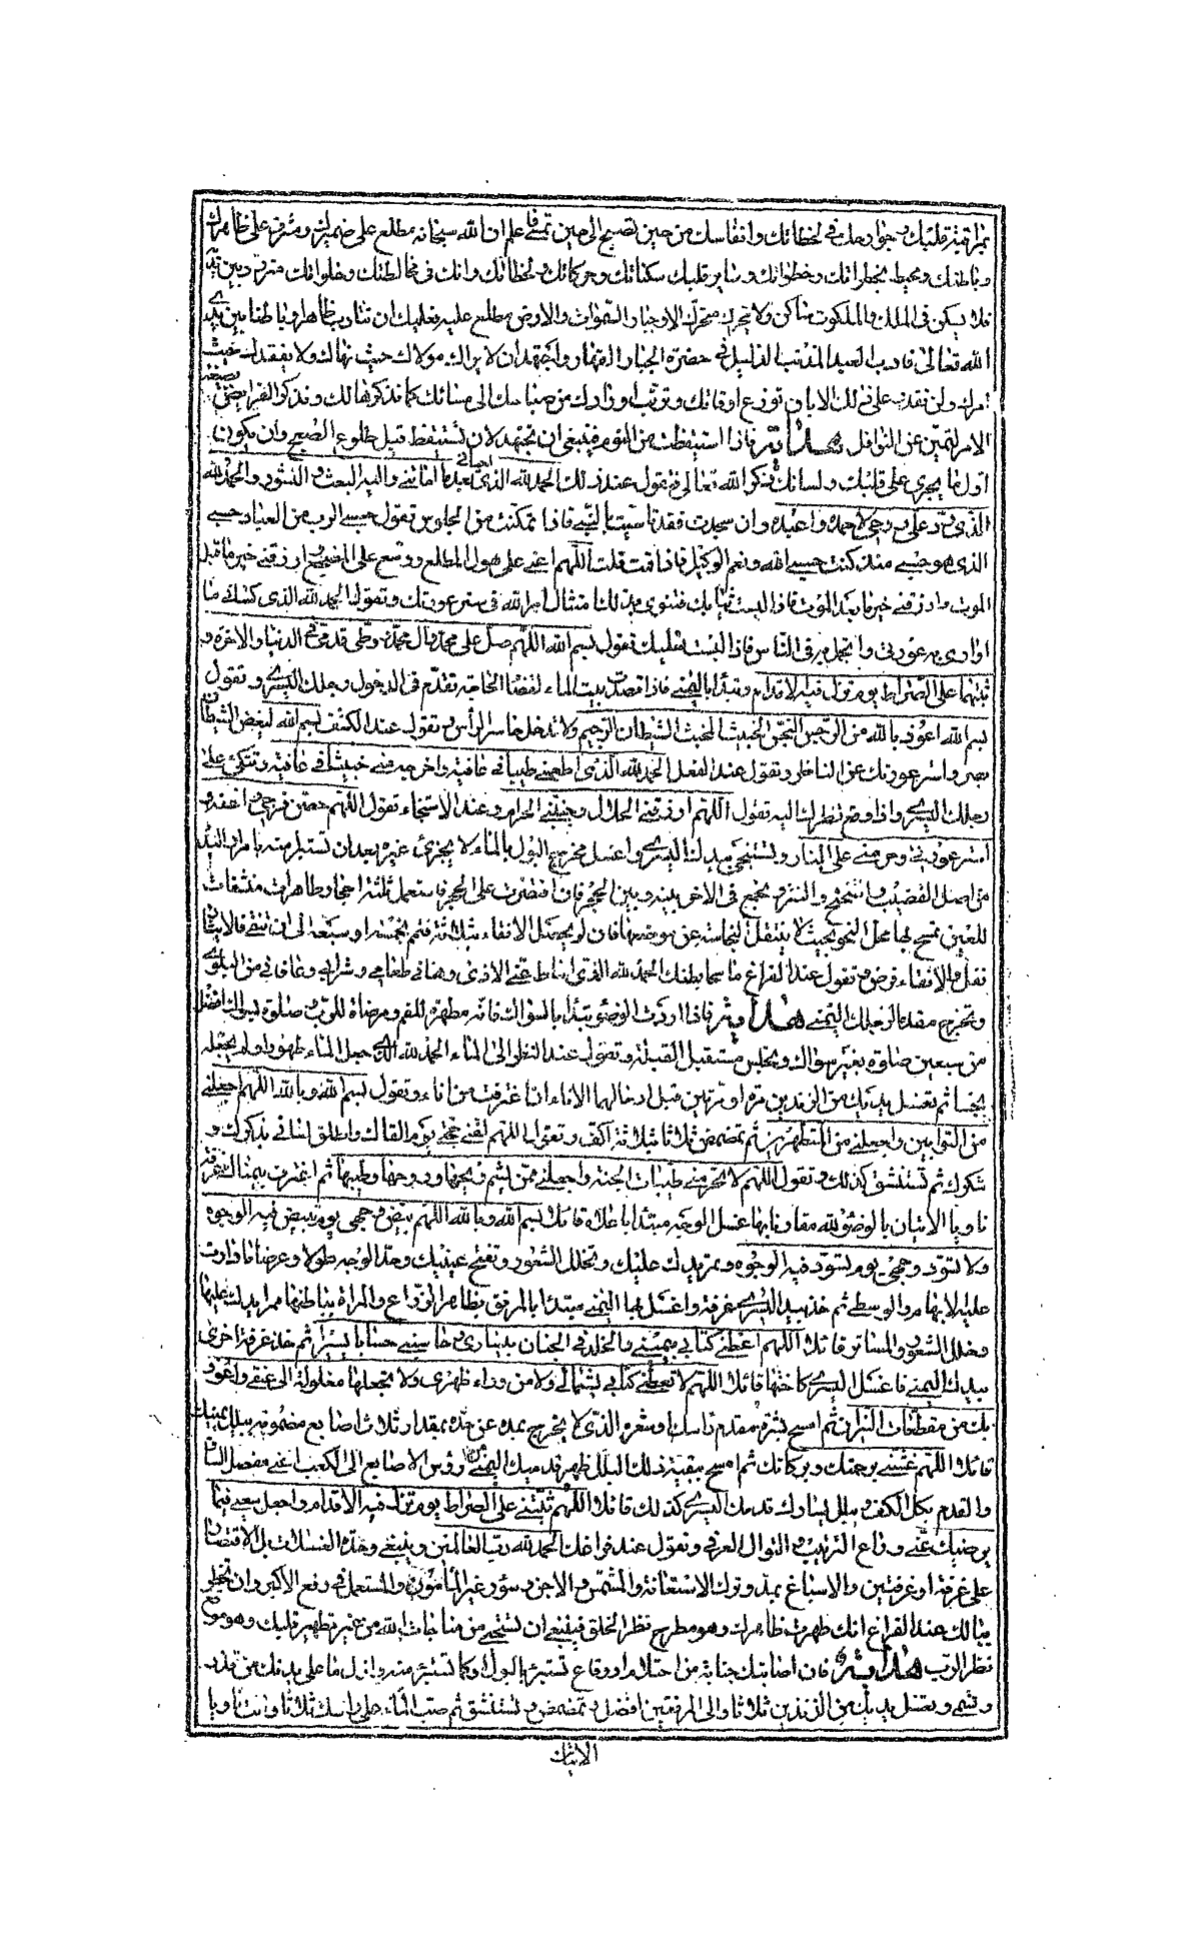 بمراقبة قلبك وجوارحك في لحظاتك وانفاسك من حين تصبح الى حين تمسي فاعلم ان الله سبحانه مطلع على ضميرك ومشرف على ظاهرك
وباطنك ومحيط بخطراتك وخطواتك وسائر قلبك سكناتك وحركاتك ولحظاتك وانك في مخالطتك وخلواتك متردد بين يديه
فلا يسكن في الملك والملكوت ساكن ولا يتحرك متحرك الا وجبار السموات والارض مطلع عليه فعليك ان تتادب ظاهرا وباطنا بين يدي
الله تعالى تادب العبد المذنب الذليل في حضرة الجبار القهار واجتهد ان لا يراك مولاك حيث نهاك ولا يفقدك حيث
امرك ولن تقدر على ذلك الا بان توزع اوقاتك وترتب اورادك من صباحك الى مسائك كما نذكرها لك ونذكر الفرايض بصيغة
الامر لتميز عن النوافل هداية فاذا استيقظت من النوم فينبغي ان تجتهد لان تستيقظ قبل طلوع الصبح وان يكون
اول ما يجري على قلبك ولسانك ذكر الله تعالى فتقول عند ذلك الحمد لله الذي احياني بعد ما اماتني واليه البعث والنشور والحمد لله
الذي رد على روحي لاحمده واعبده وان سجدت فقد تاسيت بالنبي فاذا تمكنت من الجلوس تقول حسبي الرب من العباد حسبي
الذي هو حسبي منذ كنت حسبي الله ونعم الوكيل فاذا قمت قلت اللهم اعني على هول المطلع ووسع على المضجع وارزقني خير ما قبل
الموت وارزقني خير ما بعد الموت فاذا لبست ثيابك فتنوي بذلك امتثال امر الله في ستر عورتك وتقول الحمد لله الذي كساني ما
اواري به عورتي واتجمل به في الناس فاذا لبست نعليك تقول بسم الله اللهم صل على محمد وال محمد ووطئ قدمي في الدنيا والاخرة و
ثبتهما على الصراط يوم تزل فيه الاقدام وتبدا باليمنى فاذا قصدت بيت الماء لقضاء الحاجة تقدم في الدخول رجلك اليسرى وتقول
بسم الله اعوذ بالله من الرجس النجس الخبيث المخبث الشيطان الرجيم ولا تدخل حاسر الراس وتقول عند الكشف بسم الله ليغض الشيطان
بصره واستر عورتك عن الناظر وتقول عند الفعل الحمد لله الذي اطعمنيه طيبا في عافية واخرجه مني خبيثا في عافية وتتكئ على
رجلك اليسرى واذا وقع نظرك اليه تقول اللهم ارزقني الحلال وجنبني الحرام وعند الاستنجاء تقول اللهم حصن فرجي واعفه و
استر عورتي وحرمني على النار وتستنجي بيدك اليسرى واغسل مخرج البول بالماء لا يجزئ غيره بعد ان تستبرا منه بامرار اليد
من اصل القضيب والتنحنح والنتر وتجمع في الاخر بينه وبين الحجر فان اقتصرت على الحجر فاستعمل ثلثة احجار طاهرات منشفات
للعين تمسح بها محل النجو بحيث لا ينتقل النجاسة عن موضعها فان لم يحصل الانقاء بثلاثة فتمم بخمسة او سبعة الى ان تنقى فالايتار
نفل والانقاء فرض وتقول عند الفراغ ماسحا بطنك الحمد لله الذي اماط عني الاذى وهناني طعامي وشرابي وعافاني من البلوى
وتخرج مقدما لرجلك اليمنى هداية فاذا اردت الوضوء تبدا بالسواك فانه مطهرة للفم ومرضاة للرب وصلوة بسواك افضل
من سبعين صلوة بغير سواك وتجلس مستقبل القبلة وتقول عند النظر الى الماء الحمد لله الذي جعل الماء طهورا ولم يجعله
نجسا ثم تغسل يديك من الزندين مرة او مرتين قبل ادخالهما الاناء ان اغترفت من اناء وتقول بسم الله وبالله اللهم اجعلني
من التوابين واجعلني من المتطهرين ثم تمضمض ثلاثا بثلاثة اكف وتقول اللهم لقني حجتي يوم القاك واطلق لساني بذكرك و
شكرك ثم تستنشق كذلك وتقول اللهم لا تحرمني طيبات الجنة واجعلني ممن يشم ريحها وروحها وطيبها ثم اغترف بيمناك غرفة
ناويا الاتيان بالوضوء لله مقارنا بها غسل الوجه مبتدئا باعلاه قائلا بسم الله وبالله اللهم بيض وجهي يوم تبيض فيه الوجوه
ولا تسود وجهي يوم تسود فيه الوجوه وتمر يدك عليك وتخلل الشعور وتفتح عينيك وحد الوجه طولا وعرضا ما دارت
عليه الابهام والوسطى ثم خذ بيد اليسرى غرفة واغسل بها اليمنى مبتدئا بالمرفق بظاهر الذراع والمراة بباطنها ممرا يدك عليها
وخلل الشعور والساتر قائلا اللهم اعطني كتابي بيميني والخلد في الجنان بيساري وحاسبني حسابا يسيرا ثم خذ غرفة اخرى
بيدك اليمنى فاغسل اليسرى كاختها قائلا اللهم لا تعطني كتابي بشمالي ولا من وراء ظهري ولا تجعلها مغلولة الى عنقي واعوذ
بك من مقطعات النيران ثم امسح بشرة مقدم راسك او شعره الذي لا يخرج بمده عن حده بمقدار ثلاث اصابع مضمومة ببلل يمينك
قائلا اللهم غشني برحمتك وبركاتك ثم امسح ببقية ذلك البلل ظهر قدميك اليمنى من رؤس الاصابع الى الكعب اعني مفصل الساق
والقدم بكل الكف وببلل يسارك قدمك اليسرى كذلك قائلا اللهم ثبتني على الصراط يوم تزل فيه الاقدام واجعل سعيي فيما
يرضيك عني وراع الترتيب والتوال العرفي وتقول عند فراغك الحمد لله رب العالمين وينبغي وحدة الغسلات بل الاقتصار
على غرفة او غرفتين والاسباغ بمد وترك الاستعانة والمشمس والاجن وسؤر غير المامون والمستعمل في رفع الاكبر وان تخطر
ببالك عند الفراغ انك طهرت ظاهرك وهو مطرح نظر الخلق فينبغي ان تستحيي من مناجات الله من غير تطهير قلبك وهو موقع
نظر الرب هداية فان اصابتك جنابة من احتلام او وقاع تستبرئ بالبول او كما تستبرئ منه وازل ما على بدنك من قذر
وتسمي وتغسل يديك من الزندين ثلاثا والى المرفقين افضل وتمضمض وتستنشق ثم صب الماء على راسك ثلاثا وانت ناويا
الاتيان